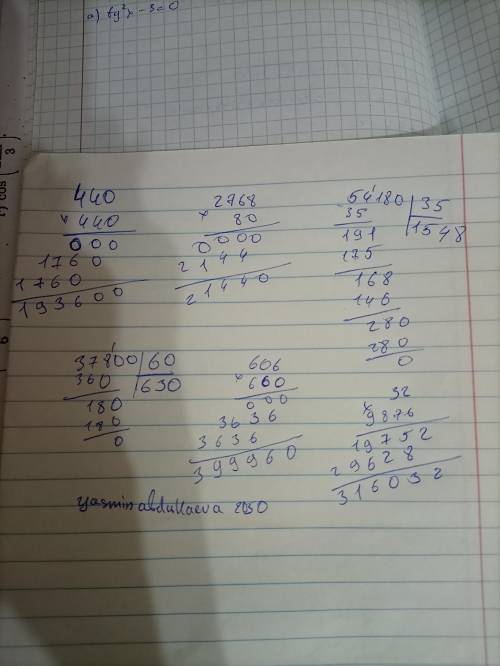 a) tg²x - 3 = 0
440
× 440
000
1760
1760
193600
2768
× 80
0000
2144
21440
54180 | 35
35 | 1548
191
175
168
146
280
280
0
37800 | 60
360 | 630
180
180
0
606
× 660
000
3636
3636
399960
32
× 9876
19752
29628
316032